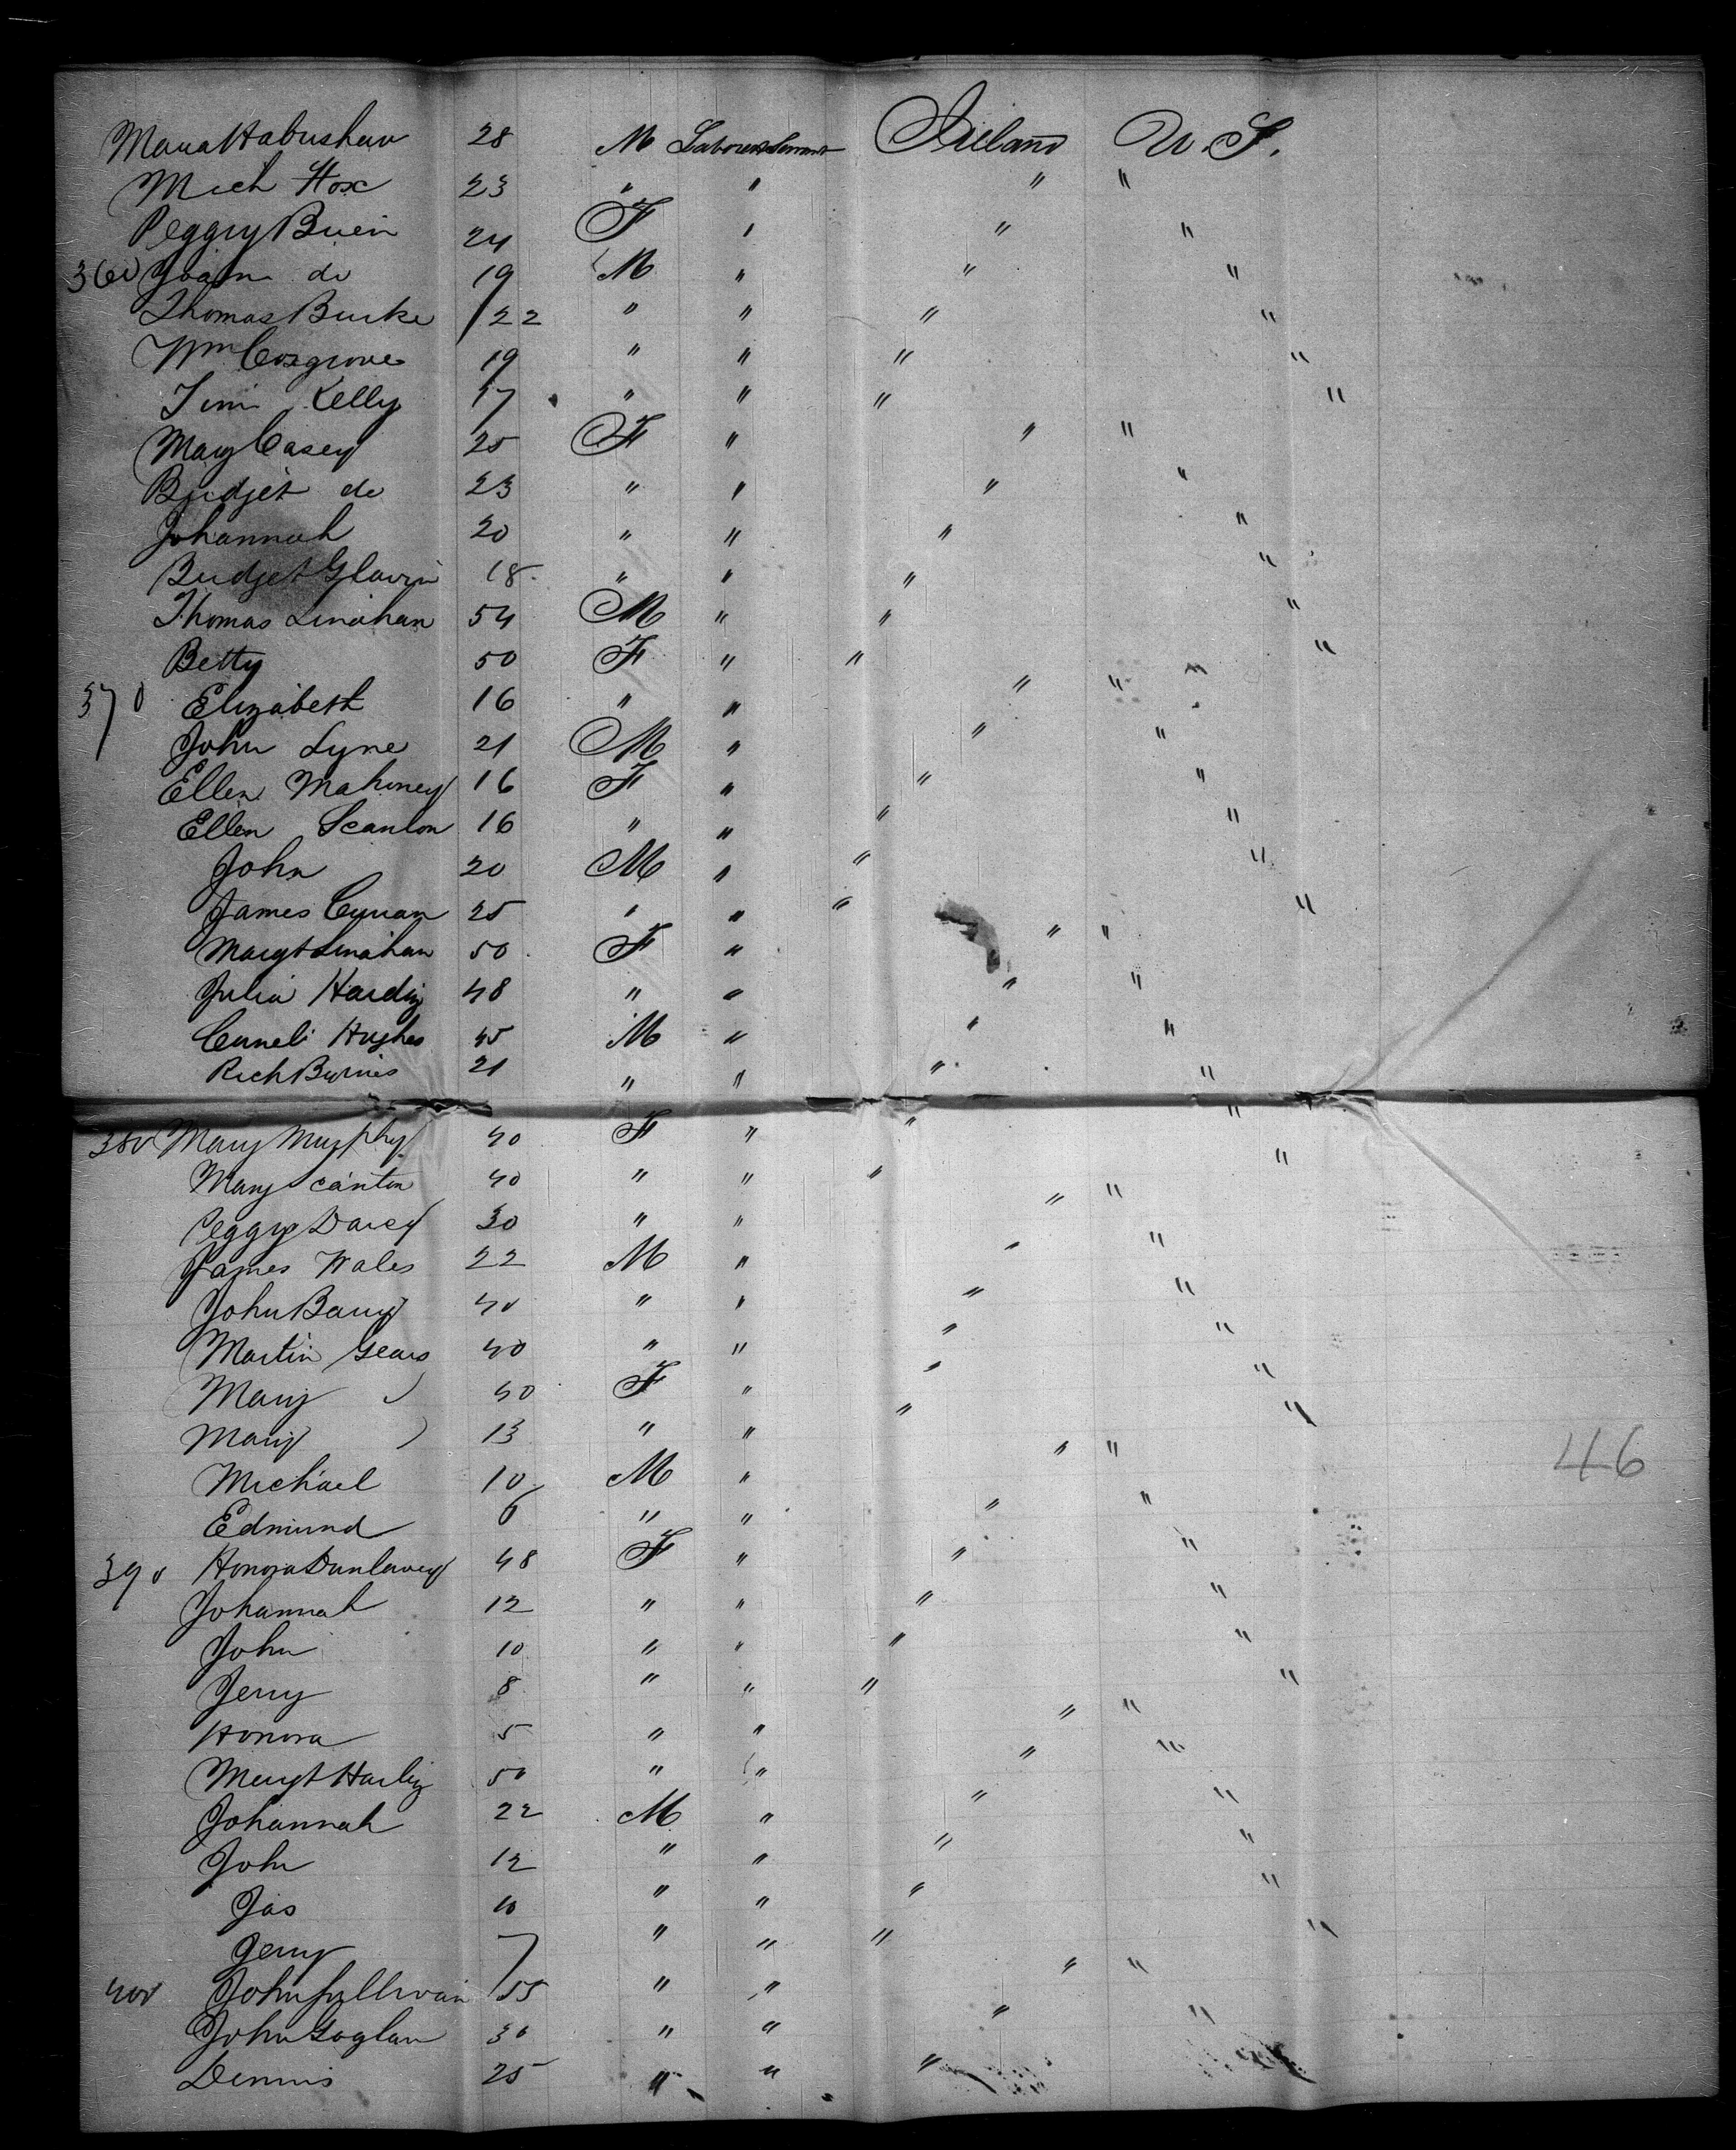 Maria Habushaw 28 M Laborer & Servant Ireland U.S.
Mich Fox 23 " " " "
Peggy Brien 24 F " " "
360 Joan do 19 M " " "
Thomas Burke 22 " " " "
Wm Cosgrove 19 " " " "
Tim Kelly 17 " " " "
Mary Casey 25 F " " "
Bridjet do 23 " " " "
Johannah 20 " " " "
Bridjet Glavin 18 " " " "
Thomas Linahan 54 M " " "
Betty 50 F " " "
370 Elizabeth 16 " " " "
John Lyne 21 M " " "
Ellen Mahoney 16 F " " "
Ellen Scanlon 16 " " " "
John 20 M " " "
James Curran 25 " " " "
Margt Linahan 50 F " " "
Julia Hardig 48 " " " "
Corneli Hughes 45 M " " "
Rich Burnes 21 " " " "
380 Mary Murphy 40 F " " "
Mary Scanton 40 " " " "
Peggy Darcy 30 " " " "
James Wales 22 M " " "
John Barry 40 " " " "
Martin Gears 40 " " " "
Mary 40 F " " "
Mary 13 " " " "
Michael 10 M " " "
Edmund 6 " " " "
390 Honora Dunlavey 48 F " " "
Johannah 12 " " " "
John 10 " " " "
Jerry 8 " " " "
Honora 5 " " " "
Margt Harlig 50 " " " "
Johannah 22 M " " "
John 12 " " " "
Jas 10 " " " "
Jerry 7 " " " "
400 John Sullivan 55 " " " "
John Goglan 30 " " " "
Dennis 25 " " "
46